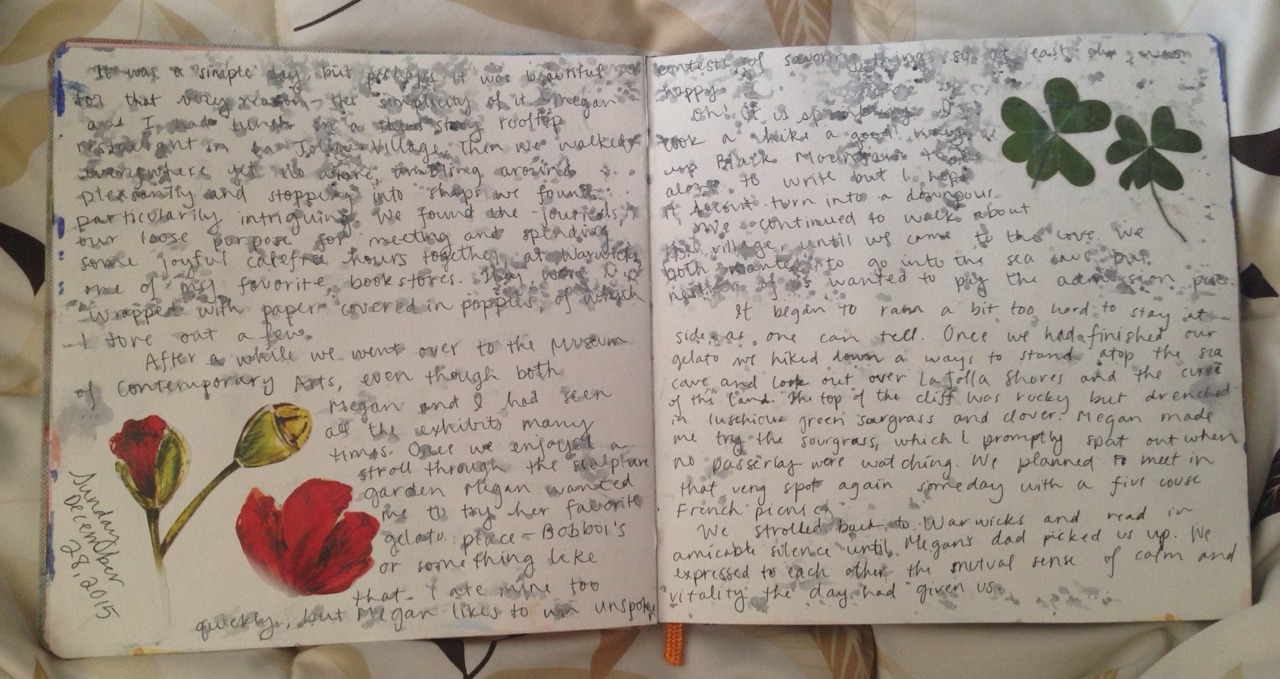 It was a simple day, but perhaps it was beautiful
for that very reason - the simplicity of it. Megan
and I had lunch in a third story rooftop
restaurant in La Jolla Village. Then we walked
everywhere yet no where, ambling around
pleasantly and stopping into shops we found
particularily intriguing. We found the journals,
our loose purpose for meeting and spending
some joyful carefree hours together, at Warwicks,
one of my favorite bookstores. They were
wrapped with paper covered in poppies, of which
I tore out a few.
After a while we went over to the Museum
of Contemporary Arts, even though both
Megan and I had seen
all the exhibits many
times. Once we enjoyed a
stroll through the sculpture
garden Megan wanted
me to try her favorite
gelato place - Bobboi's
or something like
that. I ate mine too
quickly, but Megan likes to win unspoke
Sunday
December
28, 2015
contests of savoring things so at least she
happy.
Oh! It is sprinkling. I
took a hike a good ways
up Black Mountain
alone to write but I hope
it doesnt turn into a downpour.
We continued to walk about
the village, until we came to the cove. We
both wanted to go into the sea cave but
neither of us wanted to pay the admission price.
It began to rain a bit too hard to stay at
side, as one can tell. Once we had finished our
gelato we hiked down a ways to stand atop the sea
cave and look out over La Jolla Shores and the curve
of the land. The top of the cliff was rocky but drenched
in luschious green sourgrass and clover. Megan made
me try the sourgrass, which I promptly spat out when
no passerby were watching. We planned to meet in
that very spot again someday with a five couse
French picnic.
We strolled back to Warwicks and read in
amicable silence until Megan's dad picked us up. We
expressed to each other the mutual sense of calm and
vitality the day had given us.